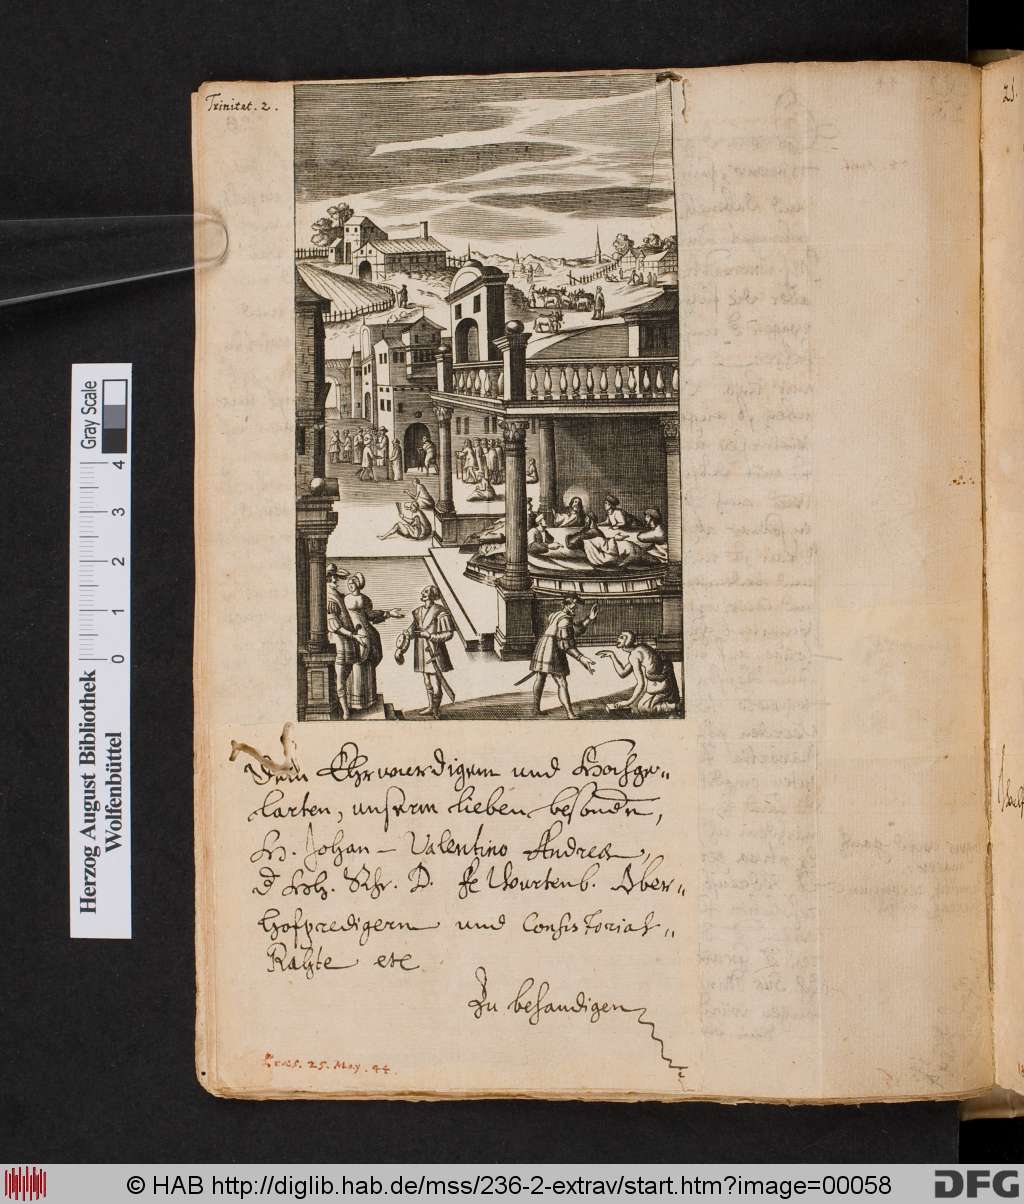 Trinitat. 2.
21.
Dem Ehrwürdigem und Hochge„
larten, unserm lieben besondn,
H. Johan- Valentino Andreæ,
d. Hlh. Schr. D. Fe Wurtenb. Ober„
hofpredigern und Consistorial„
Rahte etc
Zu behandigen
Præs. 25. May. 44.
Gray Scale
4
3
2
1
0
Herzog August Bibliothek
Wolfenbüttel
© HAB http://diglib.hab.de/mss/236-2-extrav/start.htm?image=00058
DFG